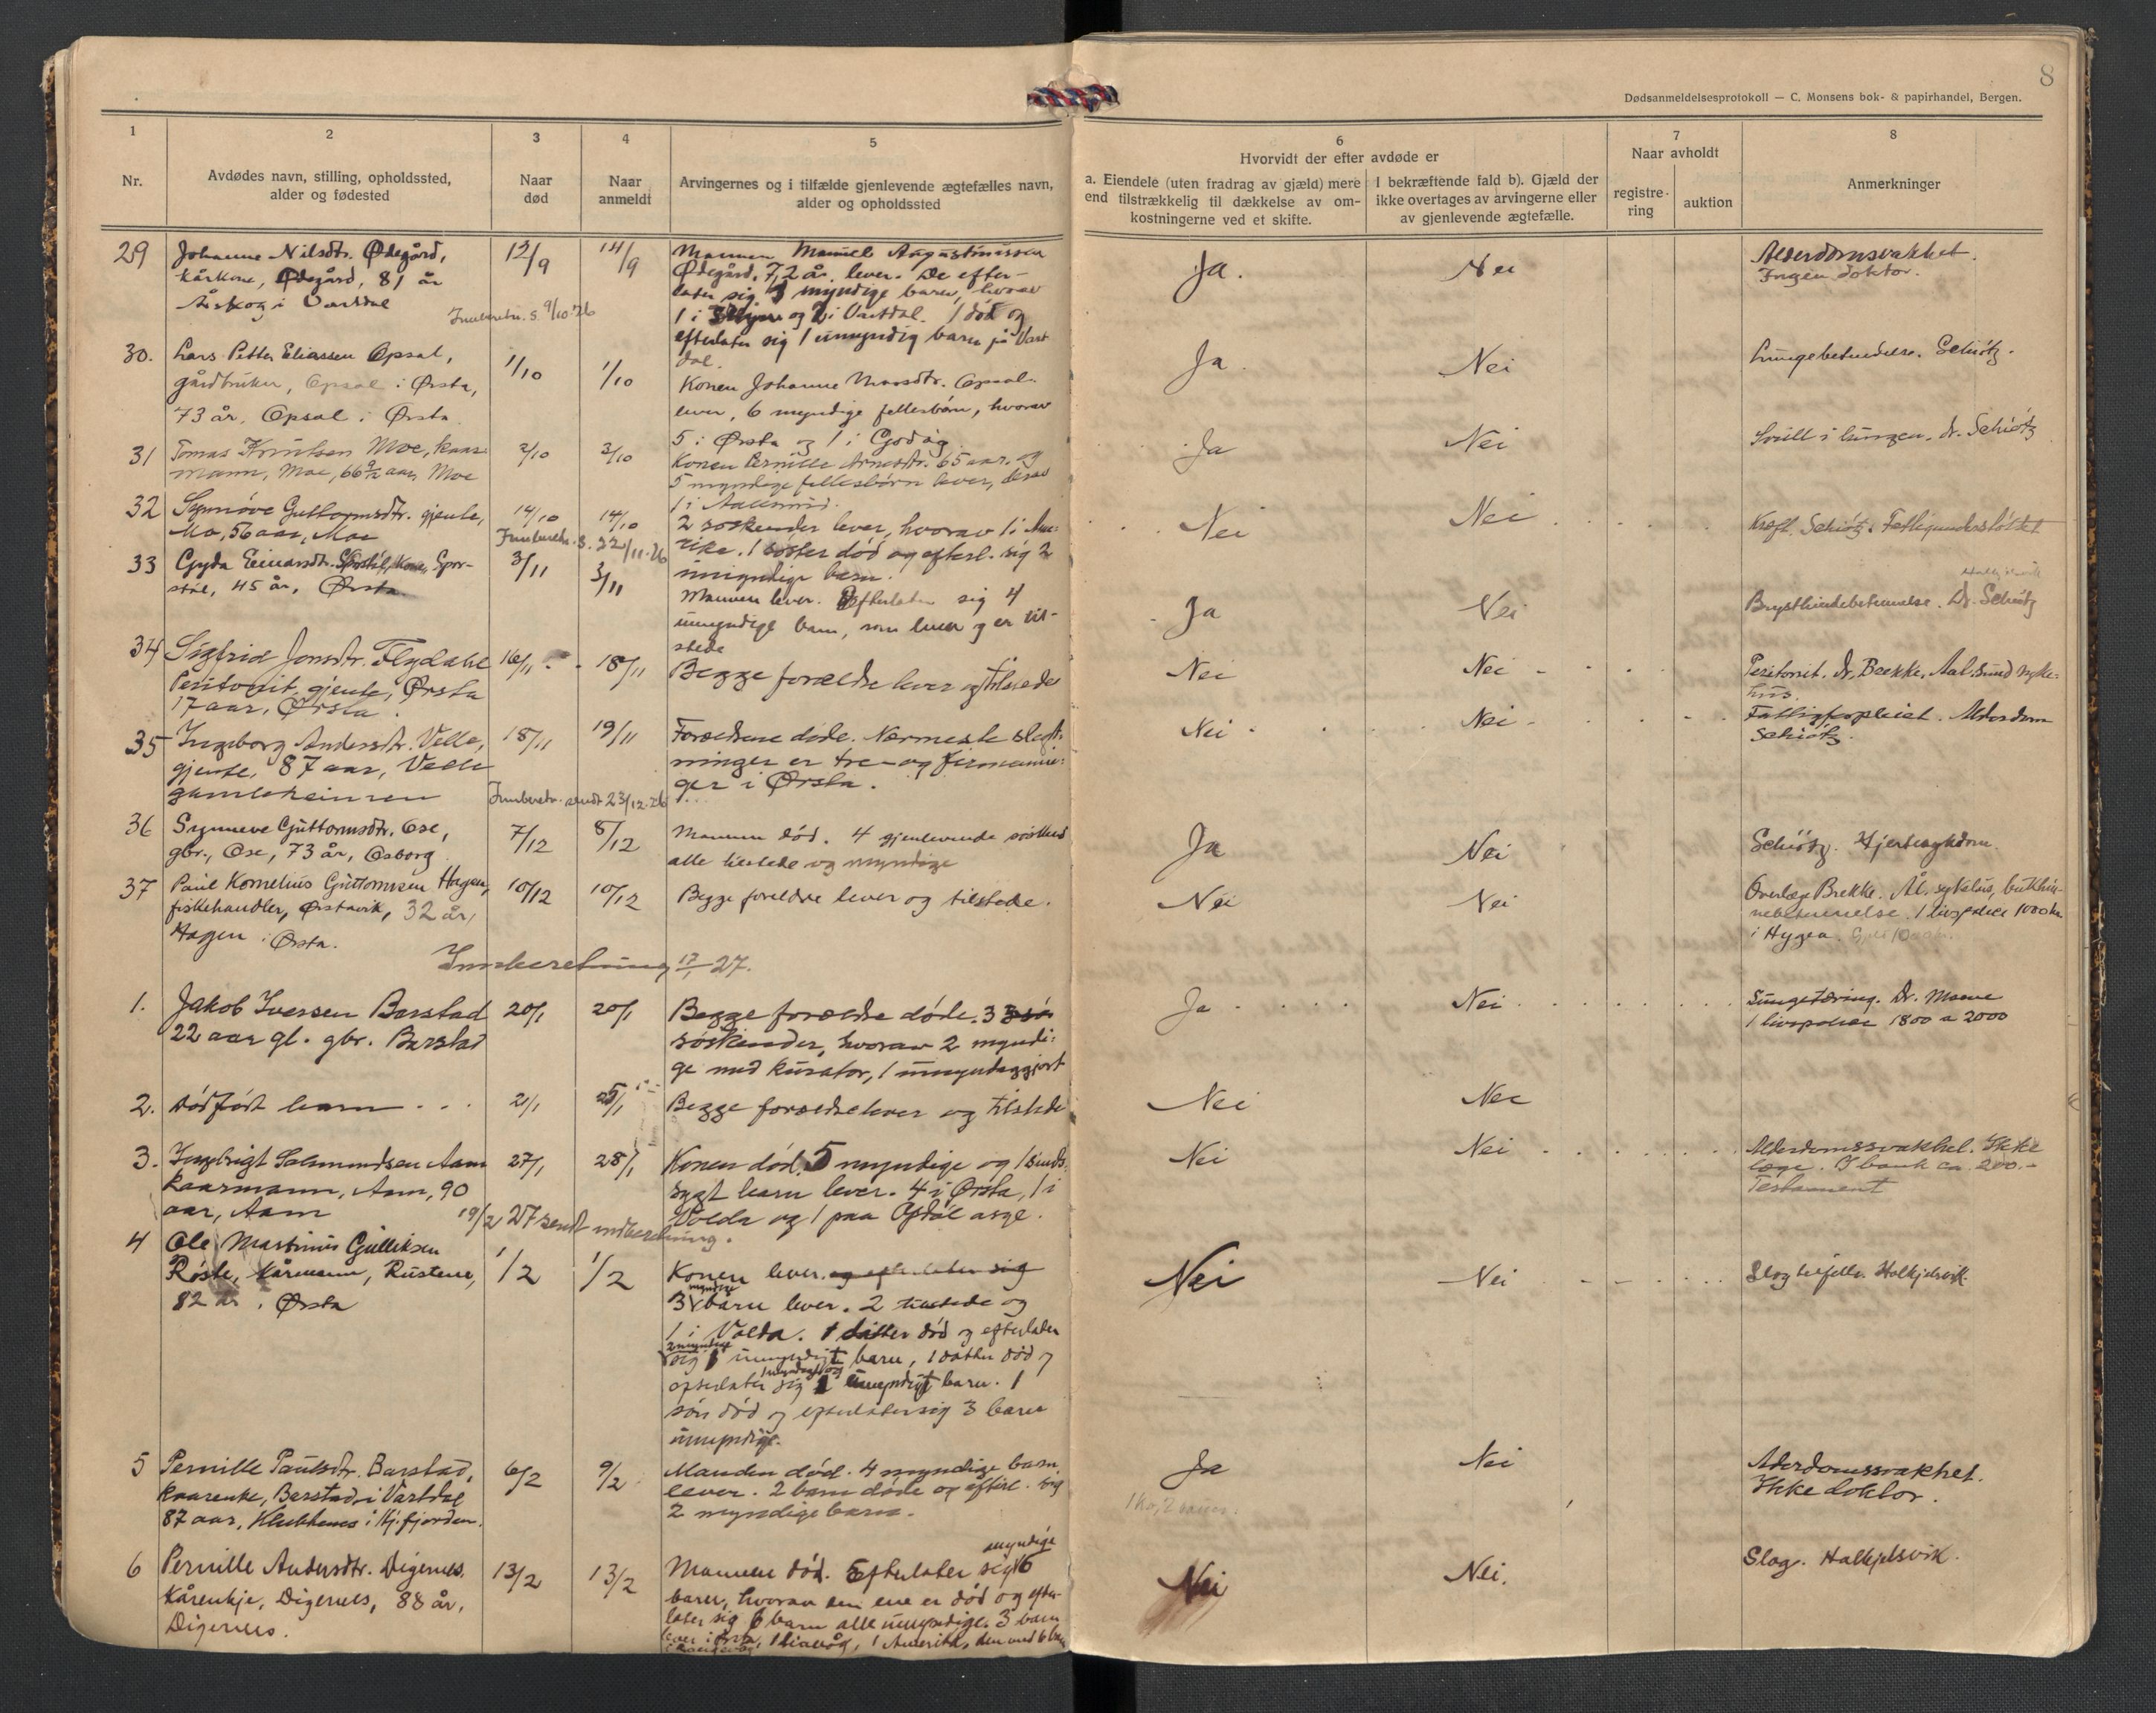 8
Dødsanmeldelsesprotokoll — C. Monsens bok- & papirhandel, Bergen.
1 2 3 4 5 6 7 8
Nr.
Avdødes navn, stilling, opholdssted,
alder og fødested
Naar
død
Naar
anmeldt
Arvingernes og i tilfælde gjenlevende ægtefælles navn,
alder og opholdssted
Hvorvidt der efter avdøde er
a. Eiendele (uten fradrag av gjæld) mere
end tilstrækkelig til dækkelse av om-
kostningerne ved et skifte.
I bekræftende fald b). Gjæld der
ikke overtages av arvingerne eller
av gjenlevende ægtefælle.
Naar avholdt
registre-
ring
auktion
Anmerkninger
29
Johanne Nilsdtr. Ødegård,
kårkone, Ødegård, 81 år
Årskog i Vartdal
12/9
14/9
Mannen Manuel Augustinussen
Ødegård, 72 år, lever. De efter-
later sig 3 myndige barn, hvorav
1 i og 2 i Vartdal. 1 død og
efterlater sig 1 umyndig barn på Vart
dal.
Ja.
Nei
Alderdomsvakhet.
Ingen doktor.
Innberetn. s. 9/10.26
30.
Lars Petter Eliassen Opsal,
gårdbruker, Opsal i Ørsta,
73 år, Opsal i Ørsta
1/10
1/10
Konen Johanne Opsal
lever, 6 myndige fellesbørn, hvorav
5 i Ørsta og 1 i
Ja
Nei
Lungebetendelse. Schiøtz.
31
Tomas Knutsen Moe, kaar-
mann, Moe, 66 1/2 aar, Moe
2/10
2/10
Konen Pernille 65 aar. og
5 myndige fellesbørn lever, derav
1 i Aalesund.
Ja
Nei
Svull i lungen. dr. Schiøtz
32
Synnøve Guttormsdtr. gjente,
Mo, 56 aar, Moe
14/10
14/10
2 søskender lever, hvorav 1 i Ame-
rika. 1 søster død og efterl. sig 2
umyndige barn.
Nei
Nei
Kreft. Schiøtz. Fattigunderstøttet
Innberetn. s. 22/11.26
33
Gyda Einarsdtr. Sporstøl, Kone, Spor-
støl, 45 år, Ørsta
3/11
3/11
Mannen lever. Efterlater sig 4
umyndige barn, som lever og er til-
stede
Ja
Nei
Brysthindebetennelse. Dr. Schiøtz
34
Sigfrid Jonsdtr. Flydahl
Peritonit, gjente, Ørsta
17 aar, Ørsta.
16/11
18/11
Begge forældre lever og tilstede
Nei
Nei
Peritonit. Dr. Brekke, Aalesund syke-
hus.
35
Ingeborg Andersdtr. Velle,
gjente, 87 aar, Velle
gamleheimen
18/11
19/11
Forældrene døde. Nærmeste slegt-
ninger er tre- og firmennin-
ger i Ørsta.
Nei
Nei
Fattigforpleiet. Alderdom
Schiøtz.
Innberetn. sendt 23/12.26
36
Synneve Guttormsdtr. Ose,
gbr., Ose, 73 år, Osborg
7/12
8/12
Mannen død. 4 gjenlevende søsken
alle tilstede og myndige
Ja
Nei
Schiøtz. Hjertesykdom.
37
Paul Kornelius Guttormsen Hagen,
fiskehandler, Ørstavik, 32 år,
Hagen i Ørsta.
10/12
10/12
Begge foreldre lever og tilstede.
Nei
Nei
Overlæge Brekke. Ål. sykehus, bukhin-
nebetennelse. 1 livspolice 1000 kr.
i Hygea.
Innberetning 17/1 27.
1.
Jakob Iversen Barstad
22 aar gl. gbr. Barstad
20/1
20/1
Begge forældre døde. 3
søskender, hvorav 2 myndi-
ge med kurator, 1 umyndiggjort
Ja
Nei
Lungetæring. Dr. Moene
1 livspolice 1800 a 2000
2.
Dødfødt barn
2/1
25/1
Begge forældre lever og tilstede
Nei
Nei
3.
Ingbrigt Salmundsen Aam
kaarmann, Aam, 90
aar, Aam
27/1
28/1
Konen død. 5 myndige og 1 sinds-
sygt barn lever. 4 i Ørsta, 1 i
Volda og 1 paa Opdøl asyl.
Nei
Nei
Alderdomssvakhet. Ikke
læge. I bank ca. 200.-
Testament
19/2 27 sendt indberetning.
4
Ole Martinus Gulliksen
Røste, kårmann, Rustene,
82 år, Ørsta
1/2
1/2
Konen lever. og efterlater sig
3 myndige barn lever. 2 tilstede og
1 i Volda. 1 datter død og efterlater
sig umyndigt barn, 1 datter død og
efterlater sig 1 umyndigt barn. 1
søn død og efterlater sig 3 barn
umyndige.
Nei
Nei
Slagtilfelle. Halkjelsvik.
5
Pernille Paulsdtr. Barstad,
kaarenke, Barstad i Vartdal
87 aar, i Hj.fjorden.
6/2
9/2
Manden død. 4 myndige barn
lever. 2 barn døde og efterl. sig
2 myndige barn.
Ja
1 ko, 2 sauer.
Nei
Alderdomssvakhet.
Ikke doktor.
6
Pernille Andersdtr. Digernes.
Kårenkje, Digernes, 88 år,
Digernes.
13/2
13/2
Mannen død. Efterlater sig 6 myndige
barn, hvorav den ene er død og efter-
later sig 6 barn alle umyndige. 3 barn
lever i Ørsta, 1 , 1 Amerika, den med 6 barn
Nei
Nei.
Slag. Halkjelsvik.